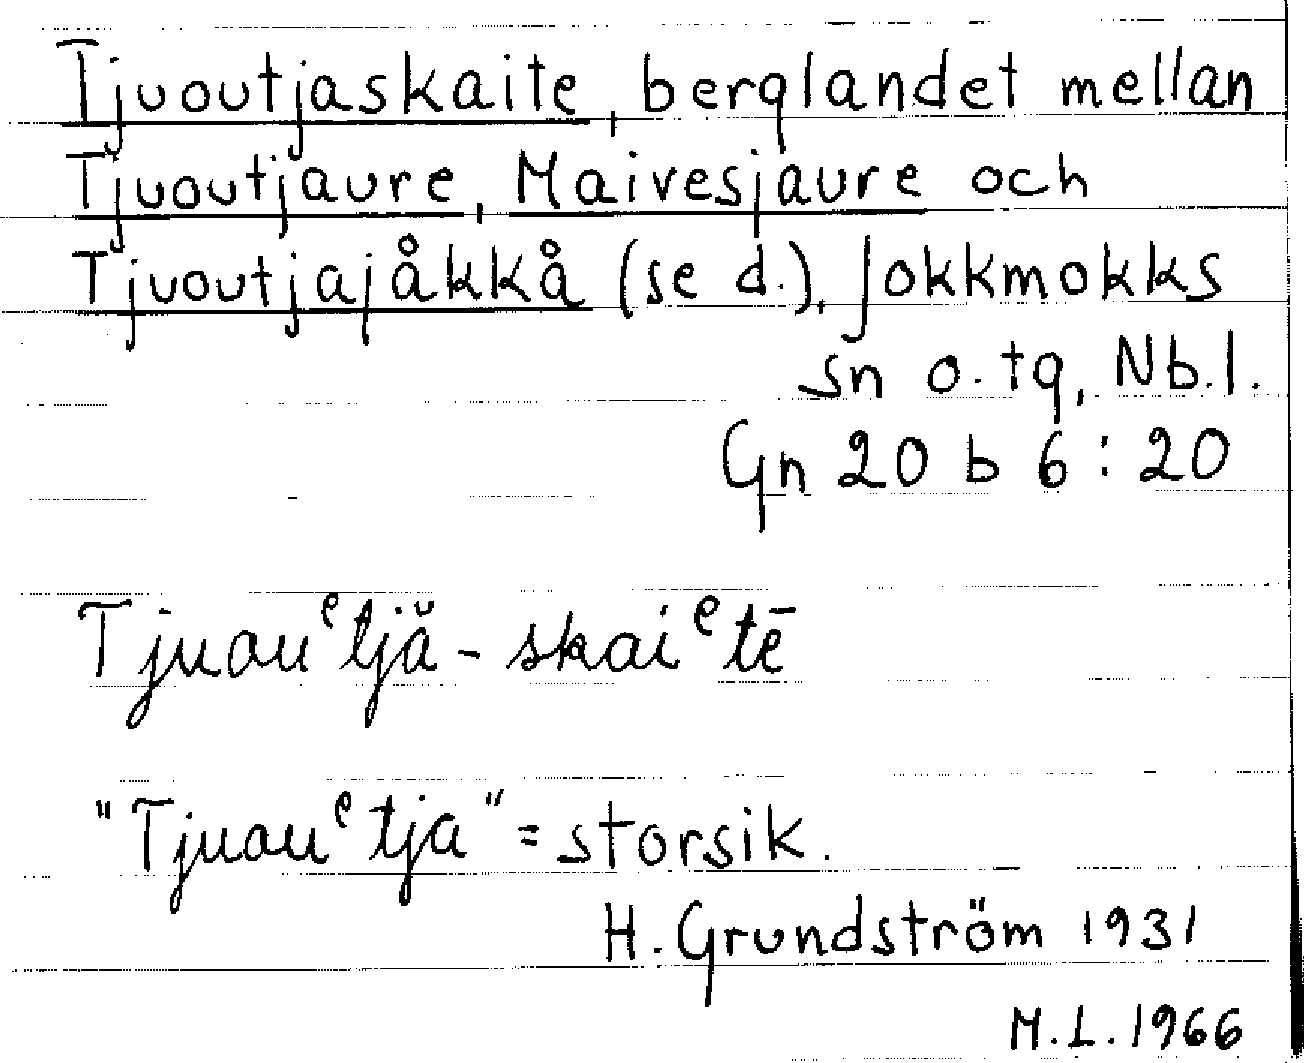 Tjuoutjaskaite, berglandet mellan
Tjuoutjaure, Maivesjaure och
Tjuoutjajåkkå (se d.), Jokkmokks
sn o. tg, Nb.l.
Gn 20 b 6:20
Tjuauᵉtjă-skaiᵉtē
"Tjuauᵉtja" = storsik.
H. Grundström 1931
M.L. 1966